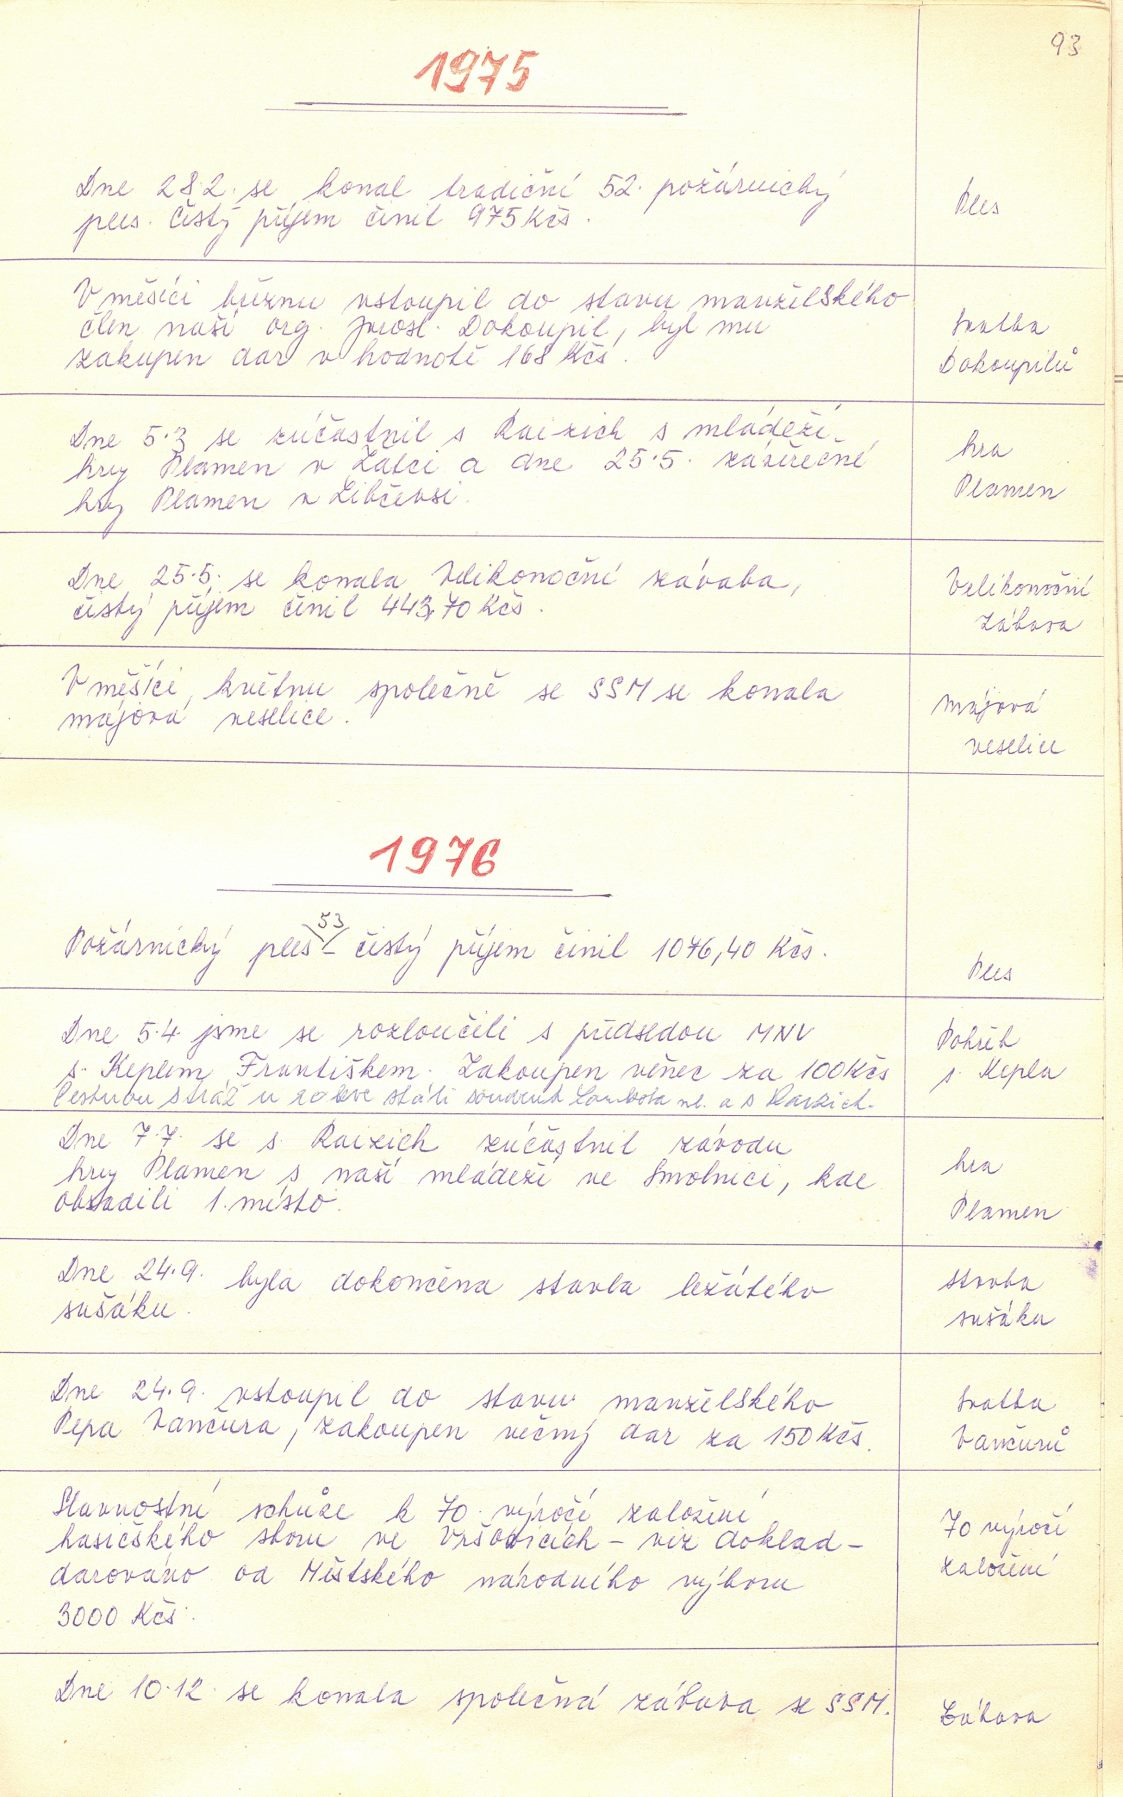 93
1975
Dne 28.2. se konal tradiční 52. požárnický
ples. Čistý příjem činil 975 Kčs.
Ples
V měsíci březnu vstoupil do stavu manželského
člen naší org. Jarosl. Dokoupil, byl mu
zakupen dar v hodnotě 168 Kčs.
Svatba
Dokoupilů
Dne 5.3 se zúčastnil s Raizich s mládeží
hry Plamen v Žatci a dne 25.5. závěrečné
hry Plamen v Libčevsi.
hra
Plamen
Dne 25.5. se konala Velikonoční závaba,
čistý příjem činil 443,70 Kčs.
Velikonoční
zábava
V měšíci květnu společně se SSM se konala
májová veselice.
Májová
veselice
1976
53
Požárnický ples – čistý příjem činil 1076,40 Kčs.
Ples
Dne 5.4. jsme se rozloučili s předsedou MNV
s. Keplem Františkem. Zakoupen věnec za 100 Kčs
Čestnou stráž u rakve stáli soudruh ml. a s Raizich.
Pohřeb
s. Kepla
Dne 7.7. se s. Raizich zúčastnil závodu
hry Plamen s naší mládeží ve Smolnici, kde
obsadili 1. místo.
hra
Plamen
Dne 24.9. byla dokončena stavba ležátého
sušáku.
stavba
sušáku
Dne 24.9. vstoupil do stavu manželského
Pepa Vančura, zakoupen věčný dar za 150 Kčs.
Svatba
Vančurů
Slavnostní schůze k 70. výročí založení
hasičského sboru ve Vršovicích – viz doklad –
darováno od Městského národního výboru
3000 Kčs.
70 výročí
založení
Dne 10.12. se konala společná zábava se SSM.
Zábava